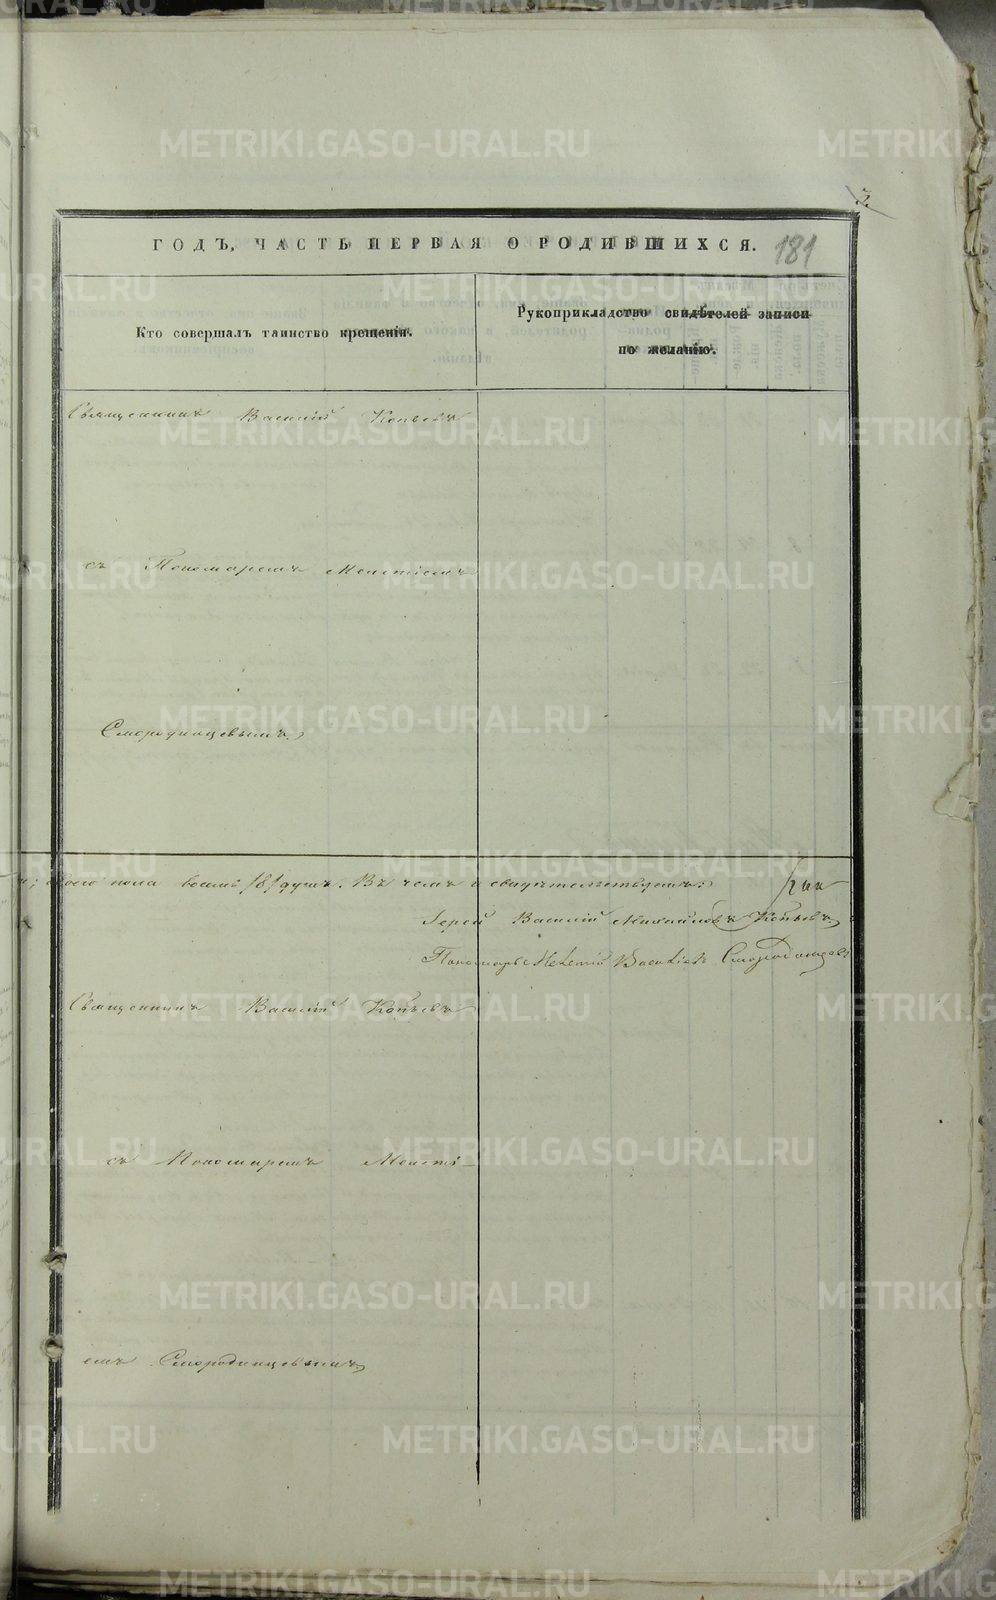 3.
ГОДЪ, ЧАСТЬ ПЕРВАЯ О РОДИВШИХСЯ.
181
Кто совершалъ таинство крещенія.
Рукоприкладство свидѣтелей записи
по желанію.
Священникъ Василій Копьевъ
съ Пономаремъ Мелетіемъ
Смородинцевымъ
обоего пола восемь /8/ душъ. Въ чемъ и свидѣтельствуемъ:
Іерей Василій Михайловъ Копьевъ
Пономарь Мелетій Василіевъ Смородинцевъ
Священникъ Василій Копьевъ
съ Пономаремъ Мелеті-
емъ Смородинцевымъ
METRIKI.GASO-URAL.RU